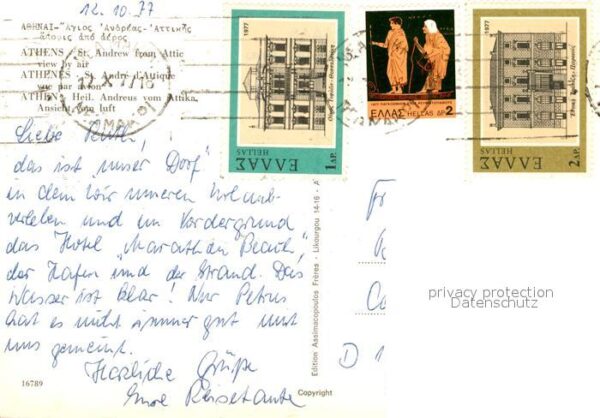 12.10.77
ΑΘΗΝΑΙ-Ἅγιος Ἀνδρέας-Ἀττικῆς
Ἄποψις ἀπό ἀέρος
ATHENS - St. Andrew from Attic
view by air
ATHENES - St. André d'Atique
vue par avion
ATHEN - Heil. Andreus vom Attika,
Ansicht von luft
Liebe
das ist "unser Dorf"
in dem wir unseren Urlaub
verleben und im Vordergrund
das Hotel "Marathon Beach",
der Hafen und der Strand. Das
Wasser ist klar! Nur Petrus
hat es nicht immer gut mit
uns gemeint.
Herzliche Grüße
Eure Reisetante
16789
Copyright
Edition Assimacopoulos Frères - Likourgou 14-16 - A
1977
ΕΛΛΑΣ
HELLAS
1ΔΡ.
ΕΛΛΑΣ HELLAS ΔΡ 2
1977
ΕΛΛΑΣ
HELLAS
2ΔΡ.
privacy protection
Datenschutz
D 1